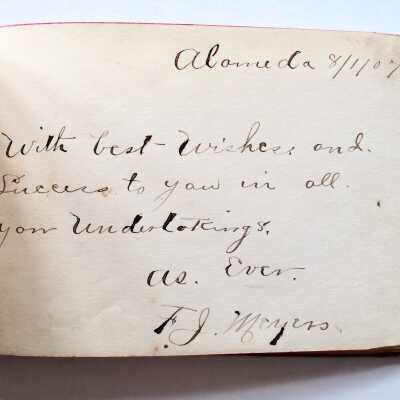 Alameda 8/1/07
With best Wishes and.
Success to you in all.
your Undertakings,
as. Ever.
F. J. Meyers